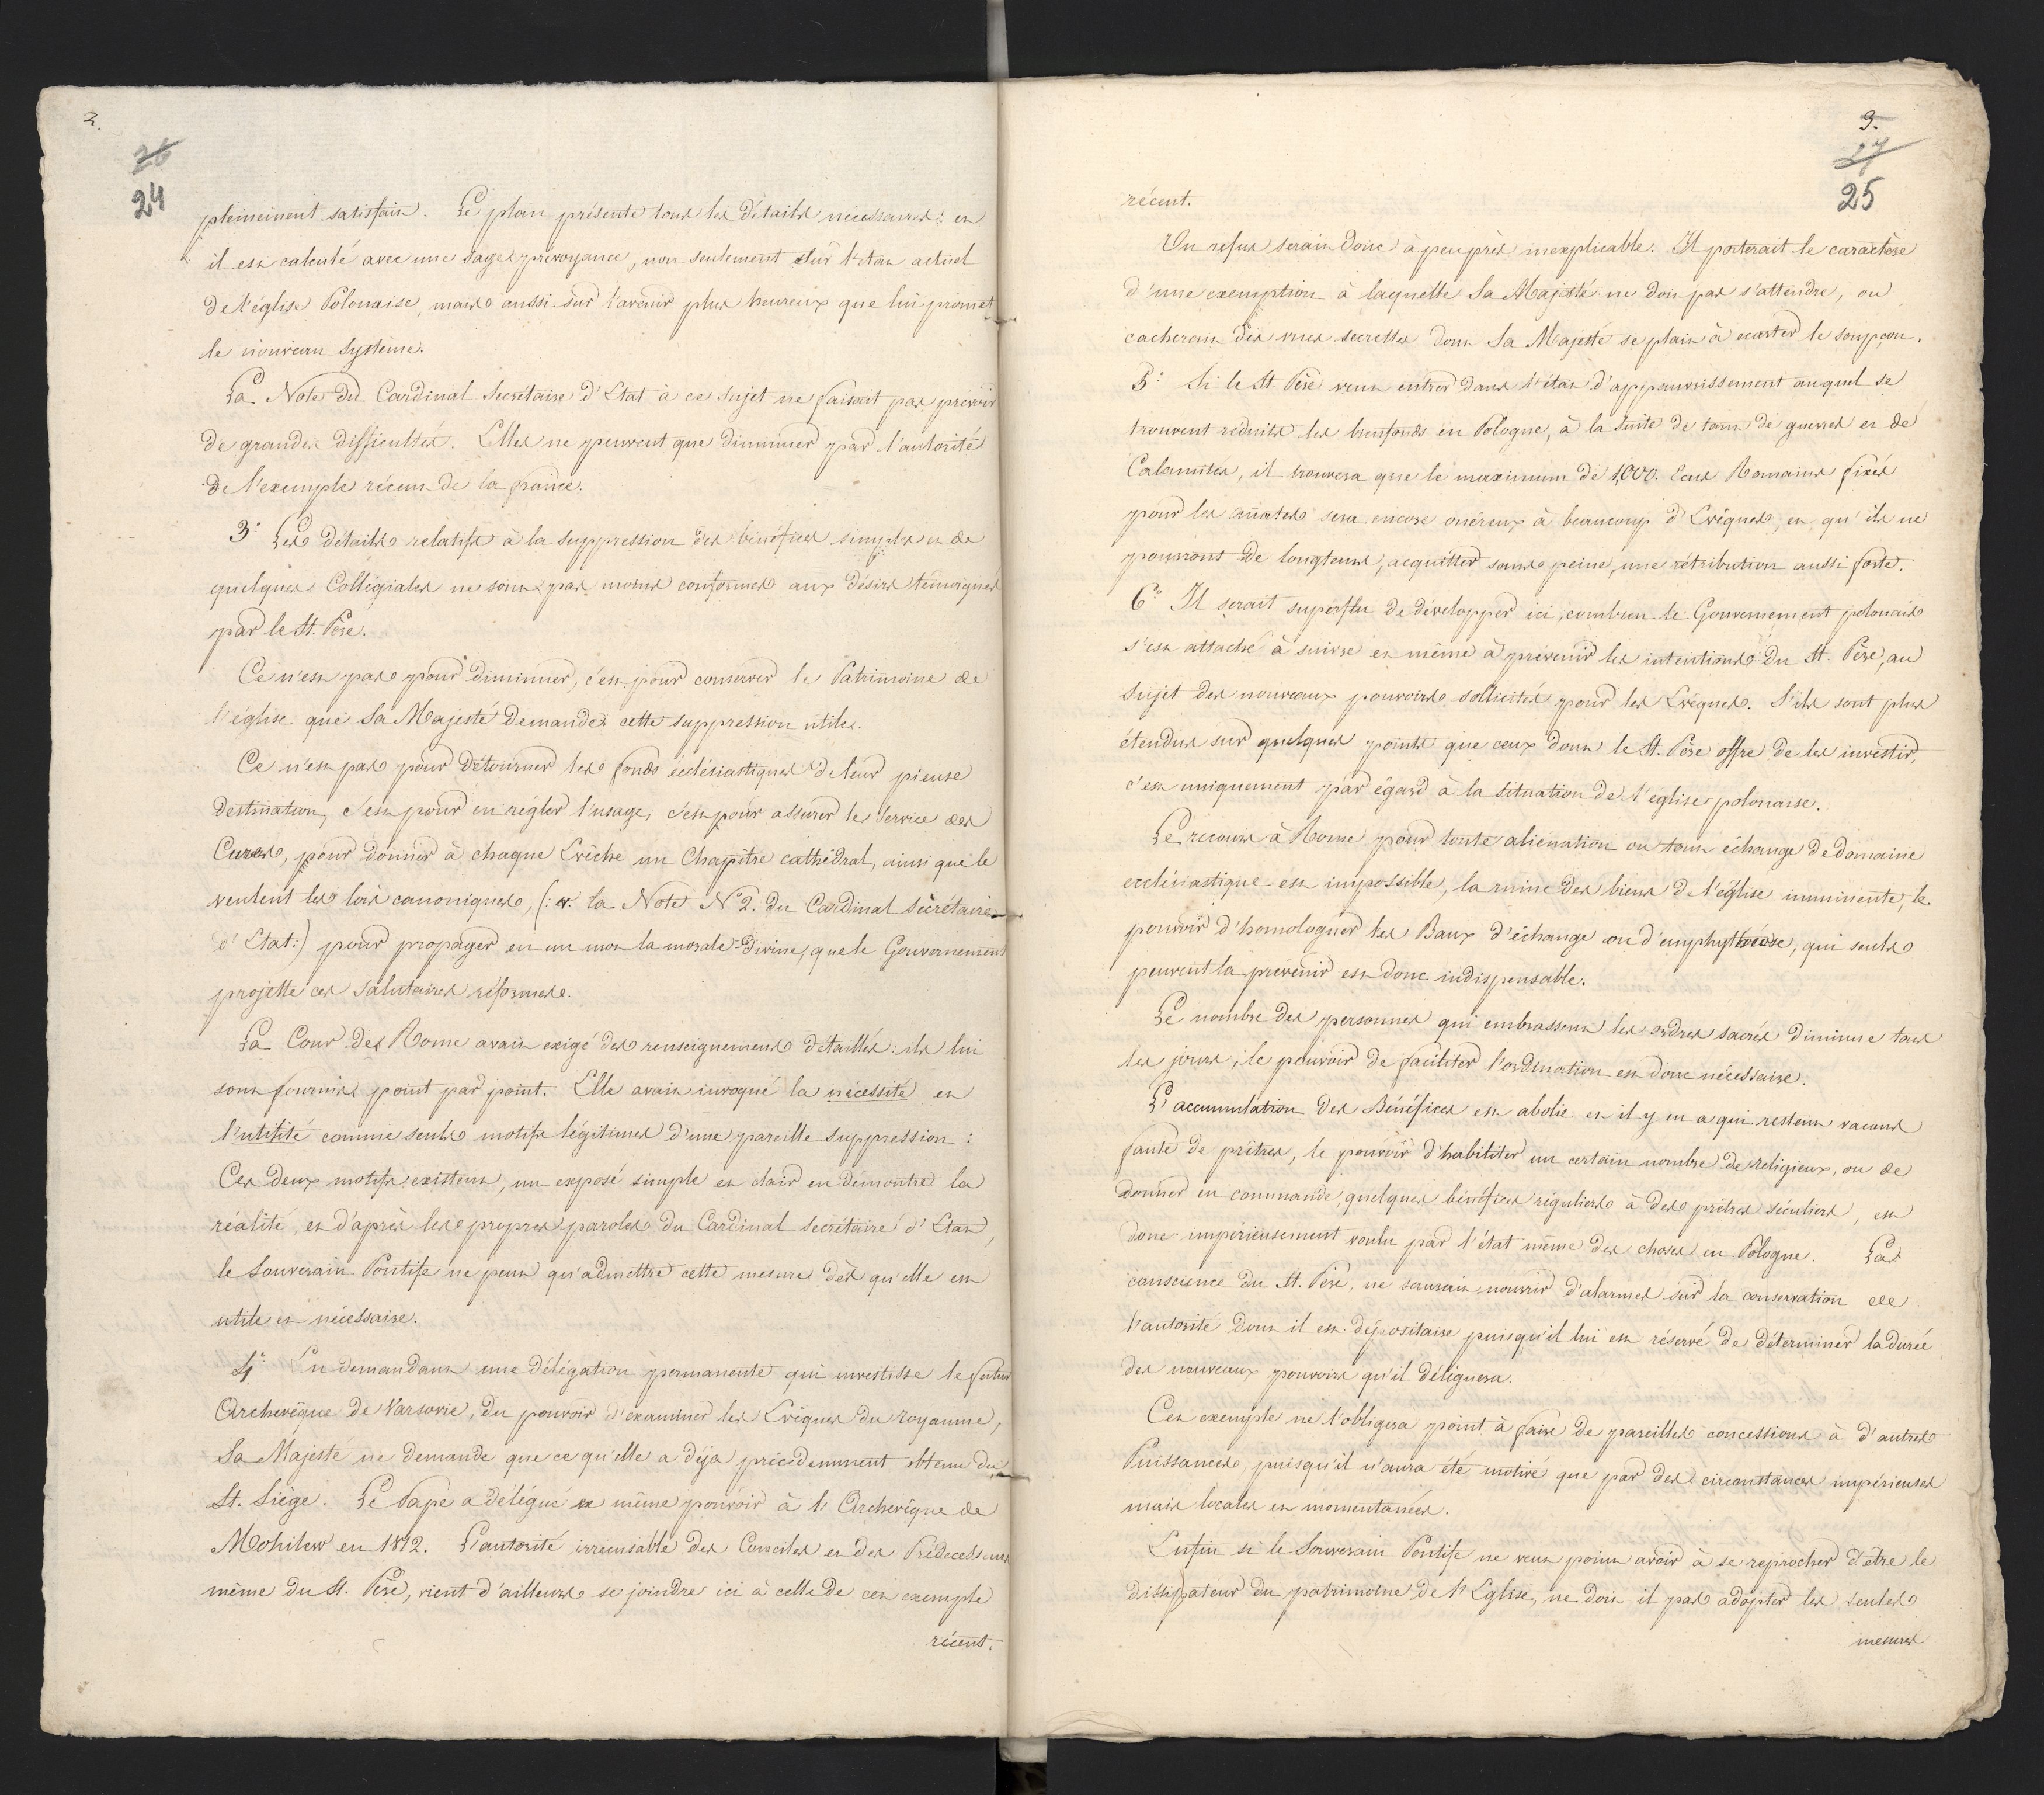 2.
26
24
pleinement satisfait. Le plan présente tous les détails nécessaires: et
il est calculé avec une sage prévoyance, non seulement sur l'état actuel
de l'église Polonaise, mais aussi sur l'avenir plus heureux que lui promet
le nouveau Système.
La Note du Cardinal Secrétaire d'Etat à ce Sujet ne faisait pas prévoir
de grandes difficultés. Elles ne peuvent que diminuer par l'autorité
de l'exemple récent de la france.
3° Les détails relatifs à la suppression des bénéfices simples et de
quelques Collégiales ne sont pas moins conformes aux désirs témoignés
par le St. Père.
Ce n'est pas pour diminuer, c'est pour conserver le Patrimoine de
l'église que Sa Majesté demande cette suppression utile.
Ce n'est pas pour détourner les fonds écclésiastiques de leur pieuse
destination, c'est pour en régler l'usage, c'est pour assurer le Service des
Cures, pour donner à chaque Evêché un Chapitre cathédral, ainsi que le
veulent les lois canoniques, (: v. la Note N 2. du Cardinal Secrétaire
d'Etat:) pour propager en un mot la morale Divine, que le Gouvernement
projette ces Salutaires réformes.
La Cour de Rome avait exigé des renseignemens détaillés: ils lui
sont fournis point par point. Elle avait invoqué la nécessité et
l'utilité comme seuls motifs légitimes d'une pareille suppression:
Ces deux motifs existent, un exposé simple et clair en démontre la
réalité, et d'après les propres paroles du Cardinal Secrétaire d'Etat,
le Souverain Pontife ne peut qu'admettre cette mesure dès qu'elle est
utile et nécessaire.
4° En demandant une délégation permanente qui investisse le futur
Archevêque de Varsovie, du pouvoir d'examiner les Evêques du royaume,
Sa Majesté ne demande que ce qu'elle a déja précédemment obtenu du
St. Siège. Le Pape a délégué ce même pouvoir à l'Archevêque de
Mohilew en 1812. L'autorité irrécusable des Conciles et des Prédecesseurs
même du St. Père, vient d'ailleurs se joindre ici à celle de cet exemple
récent.
3.
27
25
récent.
Un refus serait donc à peu près inexplicable. Il porterait le caractère
d'une exemption à laquelle Sa Majesté ne doit pas s'attendre, ou
cacherait des vues secrettes dont Sa Majesté se plait à ecarter le soupçon.
5° Si le St. Père veut entrer dans l'état d'appauvrissement auquel se
trouvent réduits les bienfonds en Pologne, à la Suite de tant de guerres et de
Calamités, il trouvera que le maximum de 1,000. Ecus Romains fixés
pour les annates sera encore onéreux à beaucoup d'Evêques, et qu'ils ne
pourront de longtems, acquitter sans peine, une rétribution aussi forte.
6° Il serait superflu de développer ici, combien le Gouvernement polonais
s'est attaché à suivre et même à prévenir les intentions du St. Père, au
Sujet des nouveaux pouvoirs sollicités pour les Evêques. S'ils sont plus
étendus sur quelques points que ceux dont le St. Père offre de les investir,
c'est uniquement par égard à la Situation de l'eglise polonaise.
Le recours à Rome pour toute aliénation ou tout échange de domaine
ecclésiastique est impossible, la ruine des biens de l'église imminente, le
pouvoir d'homologuer les Baux d'échange ou d'emphytéose, qui seuls
peuvent la prévenir est donc indispensable.
Le nombre des personnes qui embrassent les ordres sacrés diminue tous
les jours, le pouvoir de faciliter l'ordination est donc nécessaire.
L'accumulation des Bénéfices est abolie et il y en a qui restent vacans
faute de prêtres, le pouvoir d'habiliter un certain nombre de religieux, ou de
donner en commande quelques bénéfices réguliers à des prêtres séculiers, est
donc impérieusement voulu par l'état même des choses en Pologne. La
conscience du St. Père, ne saurait nourrir d'alarmes sur la conservation de
l'autorité dont il est dépositaire puisqu'il lui est réservé de déterminer la durée
des nouveaux pouvoirs qu'il déléguera.
Cet exemple ne l'obligera point à faire de pareilles concessions à d'autres
Puissances, puisqu'il n'aura été motivé que par des circonstances impérieuses
mais locales et momentanées.
Enfin si le Souverain Pontife ne veut point avoir à se reprocher d'être le
dissipateur du patrimoine de l'Eglise, ne doit il pas adopter les seules
mesures